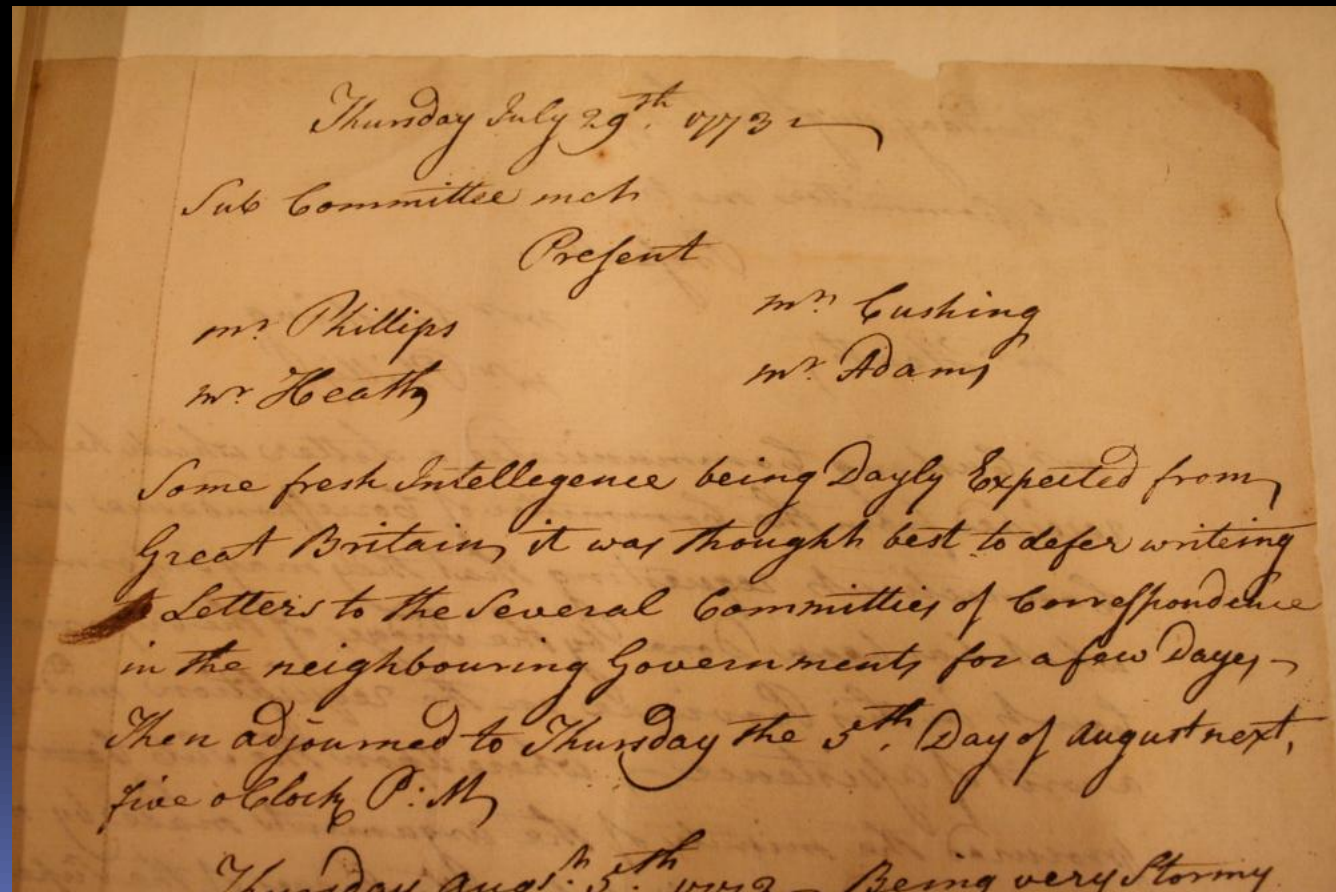 Thursday July 29th. 1773
Sub Committee met
Present
mr. Phillips mr. Cushing
mr. Heath mr. Adams
Some fresh Intellegence being Dayly Expected from
Great Britain, it was thought best to defer writeing
Letters to the Several Committies of Correspondence
in the neighbouring Governments for a few Dayes -
Then adjourned to Thursday the 5th. Day of August next,
five oClock P:M
Thursday Augst. 5th. 1773 - Being very Stormy